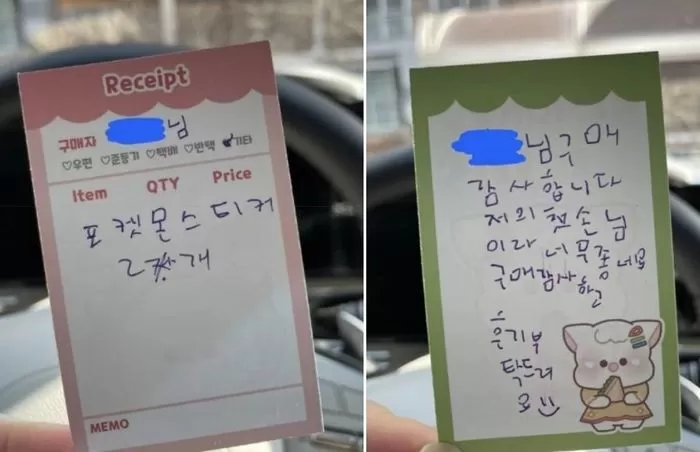 Receipt
구매자 님
♡우편 ♡준등기 ♡택배 ♡반택 ♡기타
Item QTY Price
포켓몬스티커
2개
MEMO
님구매
감사합니다
저희 첫손님
이라 너무좋네요
구매감사하고
은기부
탁드려
요